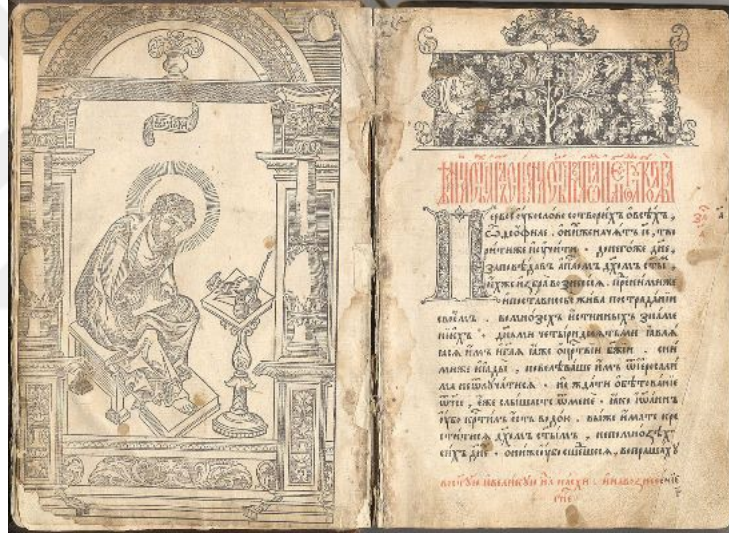 Первое ѹбо слово сотворихъ ѡ всѣхъ,
ѽ Ѳеофиле . ѡ нихже начатъ іс҃, тво
рити же и ѹчити . до негоже дн҃е,
заповѣдавъ апⷭ҇лмъ дх҃омъ ст҃ы,
ихже избра вознесеся . пред ними же
и постави себе жива по страданіи
своемъ . во мнозѣхъ истинныхъ знаме
ніихъ . деньми четыридесѧтьми ꙗвлѧ
ꙗсѧ имъ и гл҃ѧ ꙗже ѡ црⷭ҇твіи бж҃іи . с ни
миже ꙗды , повелѣваше имъ ѿ іерⷭ҇али
ма не ѿлучатисѧ . но ждати обѣтованіе
ѿче , еже слышасте ѿ мене . ꙗко іѡаннъ
ѹбо крⷭ҇тилъ есть водою . вы же имате кре
ститисѧ дх҃омъ ст҃ымъ , не по мнозѣхъ
сихъ дне . ѡни же ѹбо сшедшесѧ , вопрашахѹ